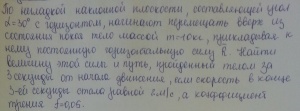 По шершавой наклонной плоскости, составляющей угол
α=30° с горизонтом, начинает перемещать вверх из
состояния покоя тело массой m=10кг, прикладывая к
нему постоянную горизонтальную силу F. Найти
величину этой силы и путь, пройденный телом за
3 секунды от начала движения, если скорость в конце
3-ей секунды стала равной 2м/с, а коэффициент
трения f=0,05.